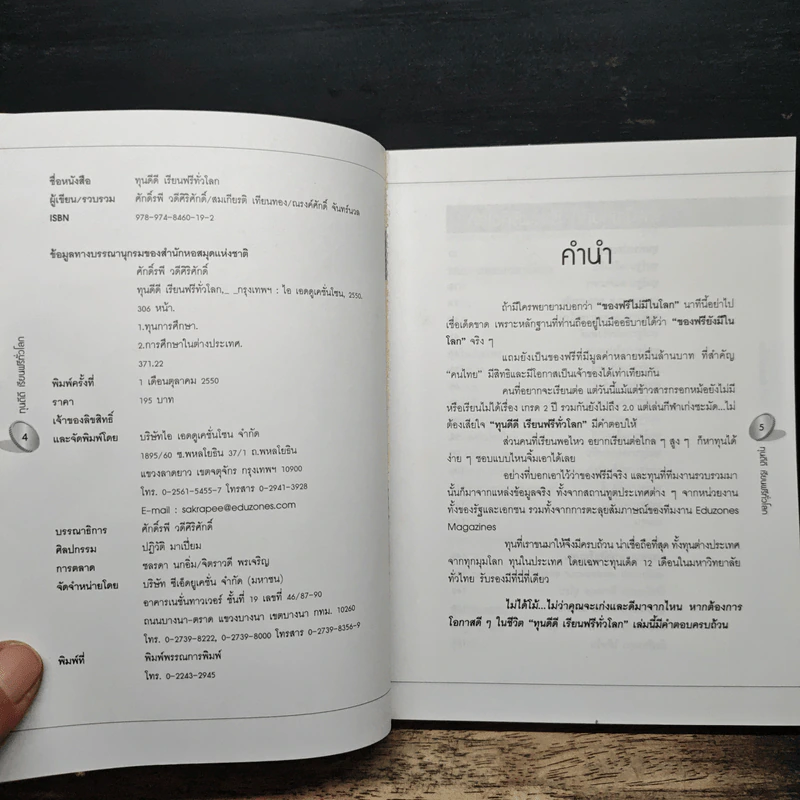 ชื่อหนังสือ ทุนดีดี เรียนฟรีทั่วโลก
ผู้เขียน/รวบรวม ศักดิ์รพี วดีศิริศักดิ์/สมเกียรติ เทียนทอง/ณรงค์ศักดิ์ จันทร์นวล
ISBN 978-974-8460-19-2
ข้อมูลทางบรรณานุกรมของสำนักหอสมุดแห่งชาติ
ศักดิ์รพี วดีศิริศักดิ์
ทุนดีดี เรียนฟรีทั่วโลก,_ _กรุงเทพฯ : ไอ เอดดูเคชั่นโซน, 2550.
306 หน้า.
1.ทุนการศึกษา.
2.การศึกษาในต่างประเทศ.
371.22
พิมพ์ครั้งที่ 1 เดือนตุลาคม 2550
ราคา 195 บาท
เจ้าของลิขสิทธิ์
และจัดพิมพ์โดย บริษัทไอ เอดดูเคชั่นโซน จำกัด
1895/60 ซ.พหลโยธิน 37/1 ถ.พหลโยธิน
แขวงลาดยาว เขตจตุจักร กรุงเทพฯ 10900
โทร. 0-2561-5455-7 โทรสาร 0-2941-3928
E-mail : sakrapee@eduzones.com
บรรณาธิการ ศักดิ์รพี วดีศิริศักดิ์
ศิลปกรรม ปฏิวัติ มาเปี่ยม
การตลาด ชลรดา นกอิ่ม/จิตราวดี พรเจริญ
จัดจำหน่ายโดย บริษัท ซีเอ็ดยูเคชั่น จำกัด (มหาชน)
อาคารเนชั่นทาวเวอร์ ชั้นที่ 19 เลขที่ 46/87-90
ถนนบางนา-ตราด แขวงบางนา เขตบางนา กทม. 10260
โทร. 0-2739-8222, 0-2739-8000 โทรสาร 0-2739-8356-9
พิมพ์ที่ พิมพ์พรรณการพิมพ์
โทร. 0-2243-2945
ทุนดีดี เรียนฟรีทั่วโลก
4
คำนำ
ถ้ามีใครพยายามบอกว่า “ของฟรีไม่มีในโลก” นาทีนี้อย่าไป
เชื่อเด็ดขาด เพราะหลักฐานที่ท่านถืออยู่ในมืออธิบายได้ว่า “ของฟรียังมีใน
โลก” จริง ๆ
แถมยังเป็นของฟรีที่มีมูลค่าหลายหมื่นล้านบาท ที่สำคัญ
“คนไทย” มีสิทธิและมีโอกาสเป็นเจ้าของได้เท่าเทียมกัน
คนที่อยากจะเรียนต่อ แต่วันนี้แม้แต่ข้าวสารกรอกหม้อยังไม่มี
หรือเรียนไม่ได้เรื่อง เกรด 2 ปี รวมกันยังไม่ถึง 2.0 แต่เล่นกีฬาเก่งชะมัด...ไม่
ต้องเสียใจ “ทุนดีดี เรียนฟรีทั่วโลก” มีคำตอบให้
ส่วนคนที่เรียนพอไหว อยากเรียนต่อไกล ๆ สูง ๆ ก็หาทุนได้
ง่าย ๆ ชอบแบบไหนจิ้มเอาได้เลย
อย่างที่บอกเอาไว้ว่าของฟรีมีจริง และทุนที่ทีมงานรวบรวมมา
นั้นก็มาจากแหล่งข้อมูลจริง ทั้งจากสถานทูตประเทศต่าง ๆ จากหน่วยงาน
ทั้งของรัฐและเอกชน รวมทั้งจากการตะลุยสัมภาษณ์ของทีมงาน Eduzones
Magazines
ทุนที่เราขนมาให้จึงมีครบถ้วน น่าเชื่อถือที่สุด ทั้งทุนต่างประเทศ
จากทุกมุมโลก ทุนในประเทศ โดยเฉพาะทุนเด็ด 12 เดือนในมหาวิทยาลัย
ทั่วไทย รับรองมีที่นี่ที่เดียว
ไม่ได้โม้...ไม่ว่าคุณจะเก่งและดีมาจากไหน หากต้องการ
โอกาสดี ๆ ในชีวิต “ทุนดีดี เรียนฟรีทั่วโลก” เล่มนี้มีคำตอบครบถ้วน
5
ทุนดีดี เรียนฟรีทั่วโลก